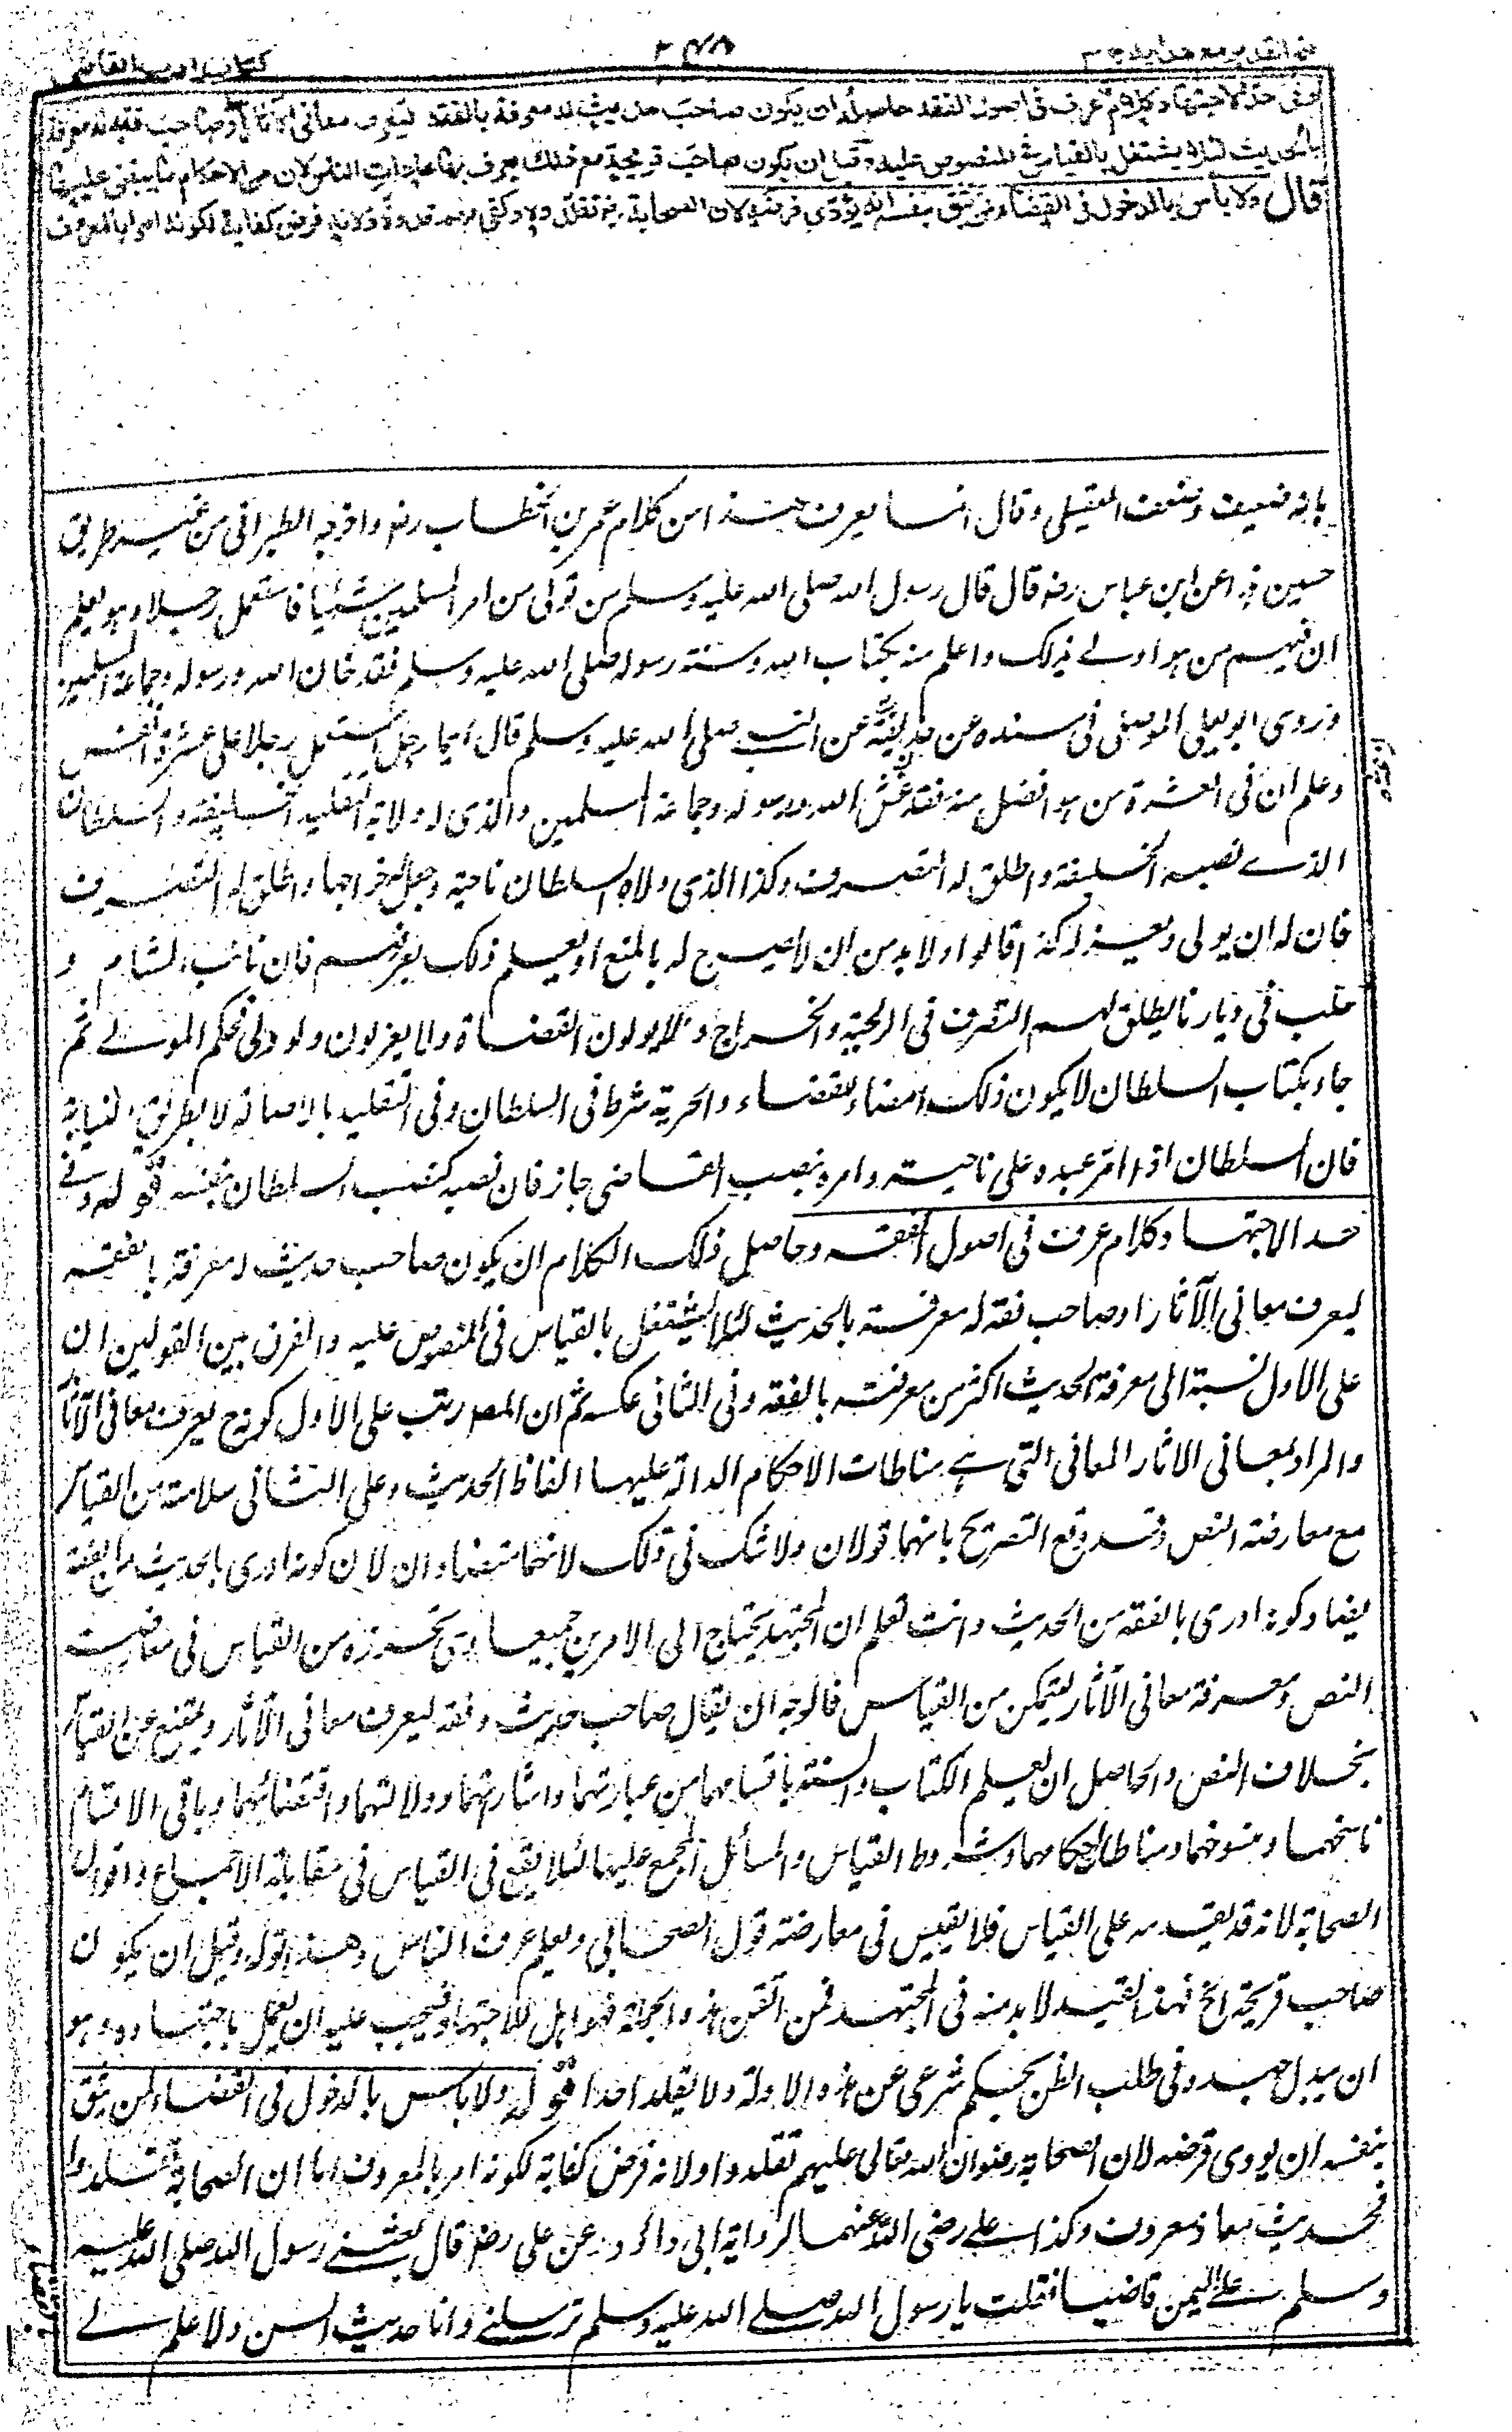 فتح القدير مع هدايه ج ٣
٣٤٨
كتاب ادب القاضى
وفى حد الاجتهاد كلام عرف فى اصول الفقه حاصله ان يكون صاحب حديث له معرفة بالفقه ليعرف معانى الاثار او صاحب فقه له معرفة
بالحديث لئلا يشتغل بالقياس فى المنصوص عليه وقيل ان يكون صاحب قريحة مع ذلك يعرف بها عادات الناس لان من الاحكام ما يبتنى عليها
قال ولا بأس بالدخول فى القضاء لمن يثق بنفسه انه يؤدى فرضه لان الصحابة رض تقلدوه وكفى بهم قدوة ولانه فرض كفاية لكونه امرا بالمعروف
بانه ضعيف وضعفه العقيلى وقال انما يعرف هذا من كلام عمر بن الخطاب رض واخرجه الطبرانى من غير طريق
حسين هذا عن ابن عباس رض قال قال رسول الله صلى الله عليه وسلم من تولى من امر المسلمين شيئا فاستعمل رجلا وهو يعلم
ان فيهم من هو اولى بذلك واعلم منه بكتاب الله وسنة رسوله صلى الله عليه وسلم فقد خان الله ورسوله وجماعة المسلمين
وروى ابو يعلى الموصلى فى مسنده عن حذيفة عن النبى صلى الله عليه وسلم قال ايما رجل استعمل رجلا على عشرة انفس
وعلم ان فى العشرة من هو افضل منه فقد غش الله ورسوله وجماعة المسلمين والذى له ولاية التقليد الخليفة والسلطان
الذى نصبه الخليفة واطلق له التصرف وكذا الذى ولاه السلطان ناحية وجعل له خراجها واطلق له التصرف
فان له ان يولى ويعزل كذا قالوا ولا بد من ان لا يصرح له بالمنع او يعلم ذلك بعرفهم فان نائب الشام و
حلب فى ديارنا يطلق لهم التصرف فى الرعية والخراج ولا يولون القضاة ولا يعزلون ولو ولى فحكم المولى ثم
جاء بكتاب السلطان لا يكون ذلك امضاء للقضاء والحرية شرط فى السلطان وفى التقليد بالاصالة لا بطريق النيابة
فان السلطان اذا امر عبده على ناحية وامره بنصب القاضى جاز فان نصبه كنصب السلطان بنفسه قوله وفى
حد الاجتهاد كلام عرف فى اصول الفقه وحاصل ذلك الكلام ان يكون صاحب حديث له معرفة بالفقه
ليعرف معانى الآثار او صاحب فقه له معرفة بالحديث لئلا يشتغل بالقياس فى المنصوص عليه والفرق بين القولين ان
على الاول نسبة الى معرفة الحديث اكثر من معرفته بالفقه وفى الثانى عكسه ثم ان المصد رتب على الاول كونه يعرف معانى الآثار
والمراد بمعانى الاثار المعانى التى هى مناطات الاحكام الدالة عليها الفاظ الحديث وعلى الثانى سلامته من القياس
مع معارضة النص وقد وقع التصريح بانهما قولان ولا شك فى ذلك لانهما متضادان لان كونه ادرى بالحديث من الفقه
يضاد كونه ادرى بالفقه من الحديث وانت تعلم ان المجتهد يحتاج الى الامرين جميعا تحرزه من القياس فى معارضة
النص ومعرفة معانى الآثار ليتمكن من القياس فالوجه ان يقال صاحب حديث وفقه ليعرف معانى الآثار ويمتنع عن القياس
بخلاف النص والحاصل ان يعلم الكتاب والسنة باقسامهما من عبارتهما واشارتهما ودلالتهما واقتضائهما وباقى الاقسام
ناسخهما ومنسوخهما ومناطات احكامهما وشروط القياس والمسائل المجمع عليها لئلا يقع فى القياس فى مقابلة الاجماع واقوال
الصحابة لانه قد يقدمه على القياس فلا يقيس فى معارضة قول الصحابى ويعلم عرف الناس وهذا قوله وقيل ان يكون
صاحب قريحة الخ فهذا القيد لا بد منه فى المجتهد فمن اتقن هذه الجملة فهو اهل للاجتهاد فيجب عليه ان يعمل باجتهاده وهو
ان يبذل جهده فى طلب الظن بحكم شرعى عن هذه الادلة ولا يقلد احدا قوله ولا باس بالدخول فى القضاء لمن يثق
بنفسه ان يودى فرضه لان الصحابة رضوان الله تعالى عليهم تقلدوا ولانه فرض كفاية لكونه امر بالمعروف اما ان الصحابة تقلدوا
فحديث معاذ معروف وكذا على رضى الله عنهما لرواية ابى داؤد عن على رض قال بعثنى رسول الله صلى الله عليه
وسلم على اليمن قاضيا فقلت يا رسول الله صلى الله عليه وسلم ترسلنى وانا حديث السن ولا علم لى